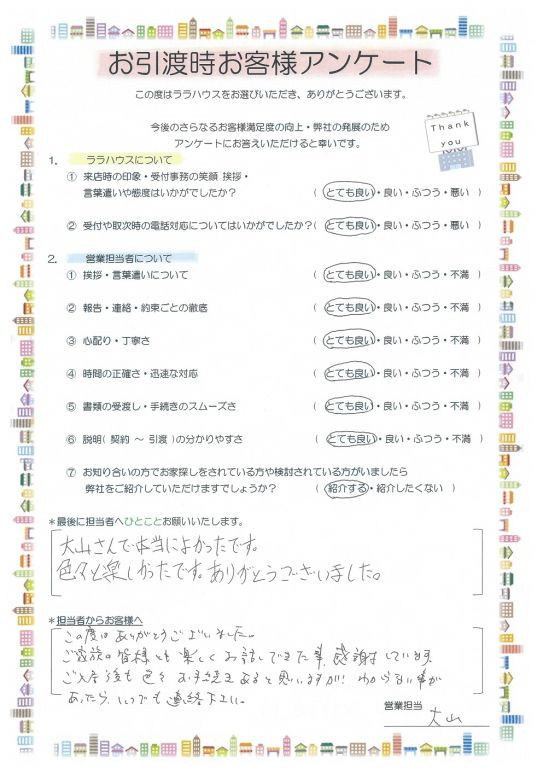 お引渡時お客様アンケート
この度はララハウスをお選びいただき、ありがとうございます。
今後のさらなるお客様満足度の向上・弊社の発展のため
アンケートにお答えいただけると幸いです。
Thank
you
1. ララハウスについて
① 来店時の印象・受付事務の笑顔 挨拶・
言葉遣いや態度はいかがでしたか? ( とても良い・良い・ふつう・悪い )
② 受付や取次時の電話対応についてはいかがでしたか?( とても良い・良い・ふつう・悪い )
2. 営業担当者について
① 挨拶・言葉遣いについて ( とても良い・良い・ふつう・不満 )
② 報告・連絡・約束ごとの徹底 ( とても良い・良い・ふつう・不満 )
③ 心配り・丁寧さ ( とても良い・良い・ふつう・不満 )
④ 時間の正確さ・迅速な対応 ( とても良い・良い・ふつう・不満 )
⑤ 書類の受渡し・手続きのスムーズさ ( とても良い・良い・ふつう・不満 )
⑥ 説明( 契約 ~ 引渡 )の分かりやすさ ( とても良い・良い・ふつう・不満 )
⑦ お知り合いの方でお家探しをされている方や検討されている方がいましたら
弊社をご紹介していただけますでしょうか? ( 紹介する・紹介したくない )
*最後に担当者へひとことお願いいたします。
大山さんで本当によかったです。
色々と楽しかったです。ありがとうございました。
*担当者からお客様へ
この度はありがとうございました。
ご家族の皆様とも楽しくお話しできた事、感謝しています。
ご入居後も色々お手続きあると思いますが! わからない事が
あったら、いつでも連絡下さい。
営業担当 大山